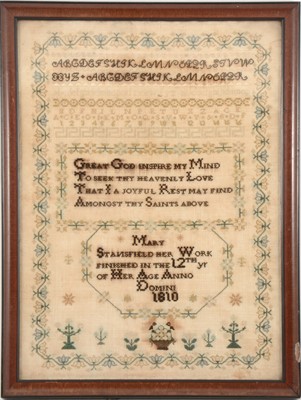 ABCDEFGHIKLMNOPQRSTVW
XYZ
GREAT GOD INSPIRE MY MIND
TO SEEK THY HEAVENLY LOVE
THAT I A JOYFUL REST MAY FIND
AMONGST THY SAINTS ABOVE
MARY
STANSFIELD HER WORK
FINISHED IN THE 12TH yr
OF HER AGE ANNO
DOMINI
1810